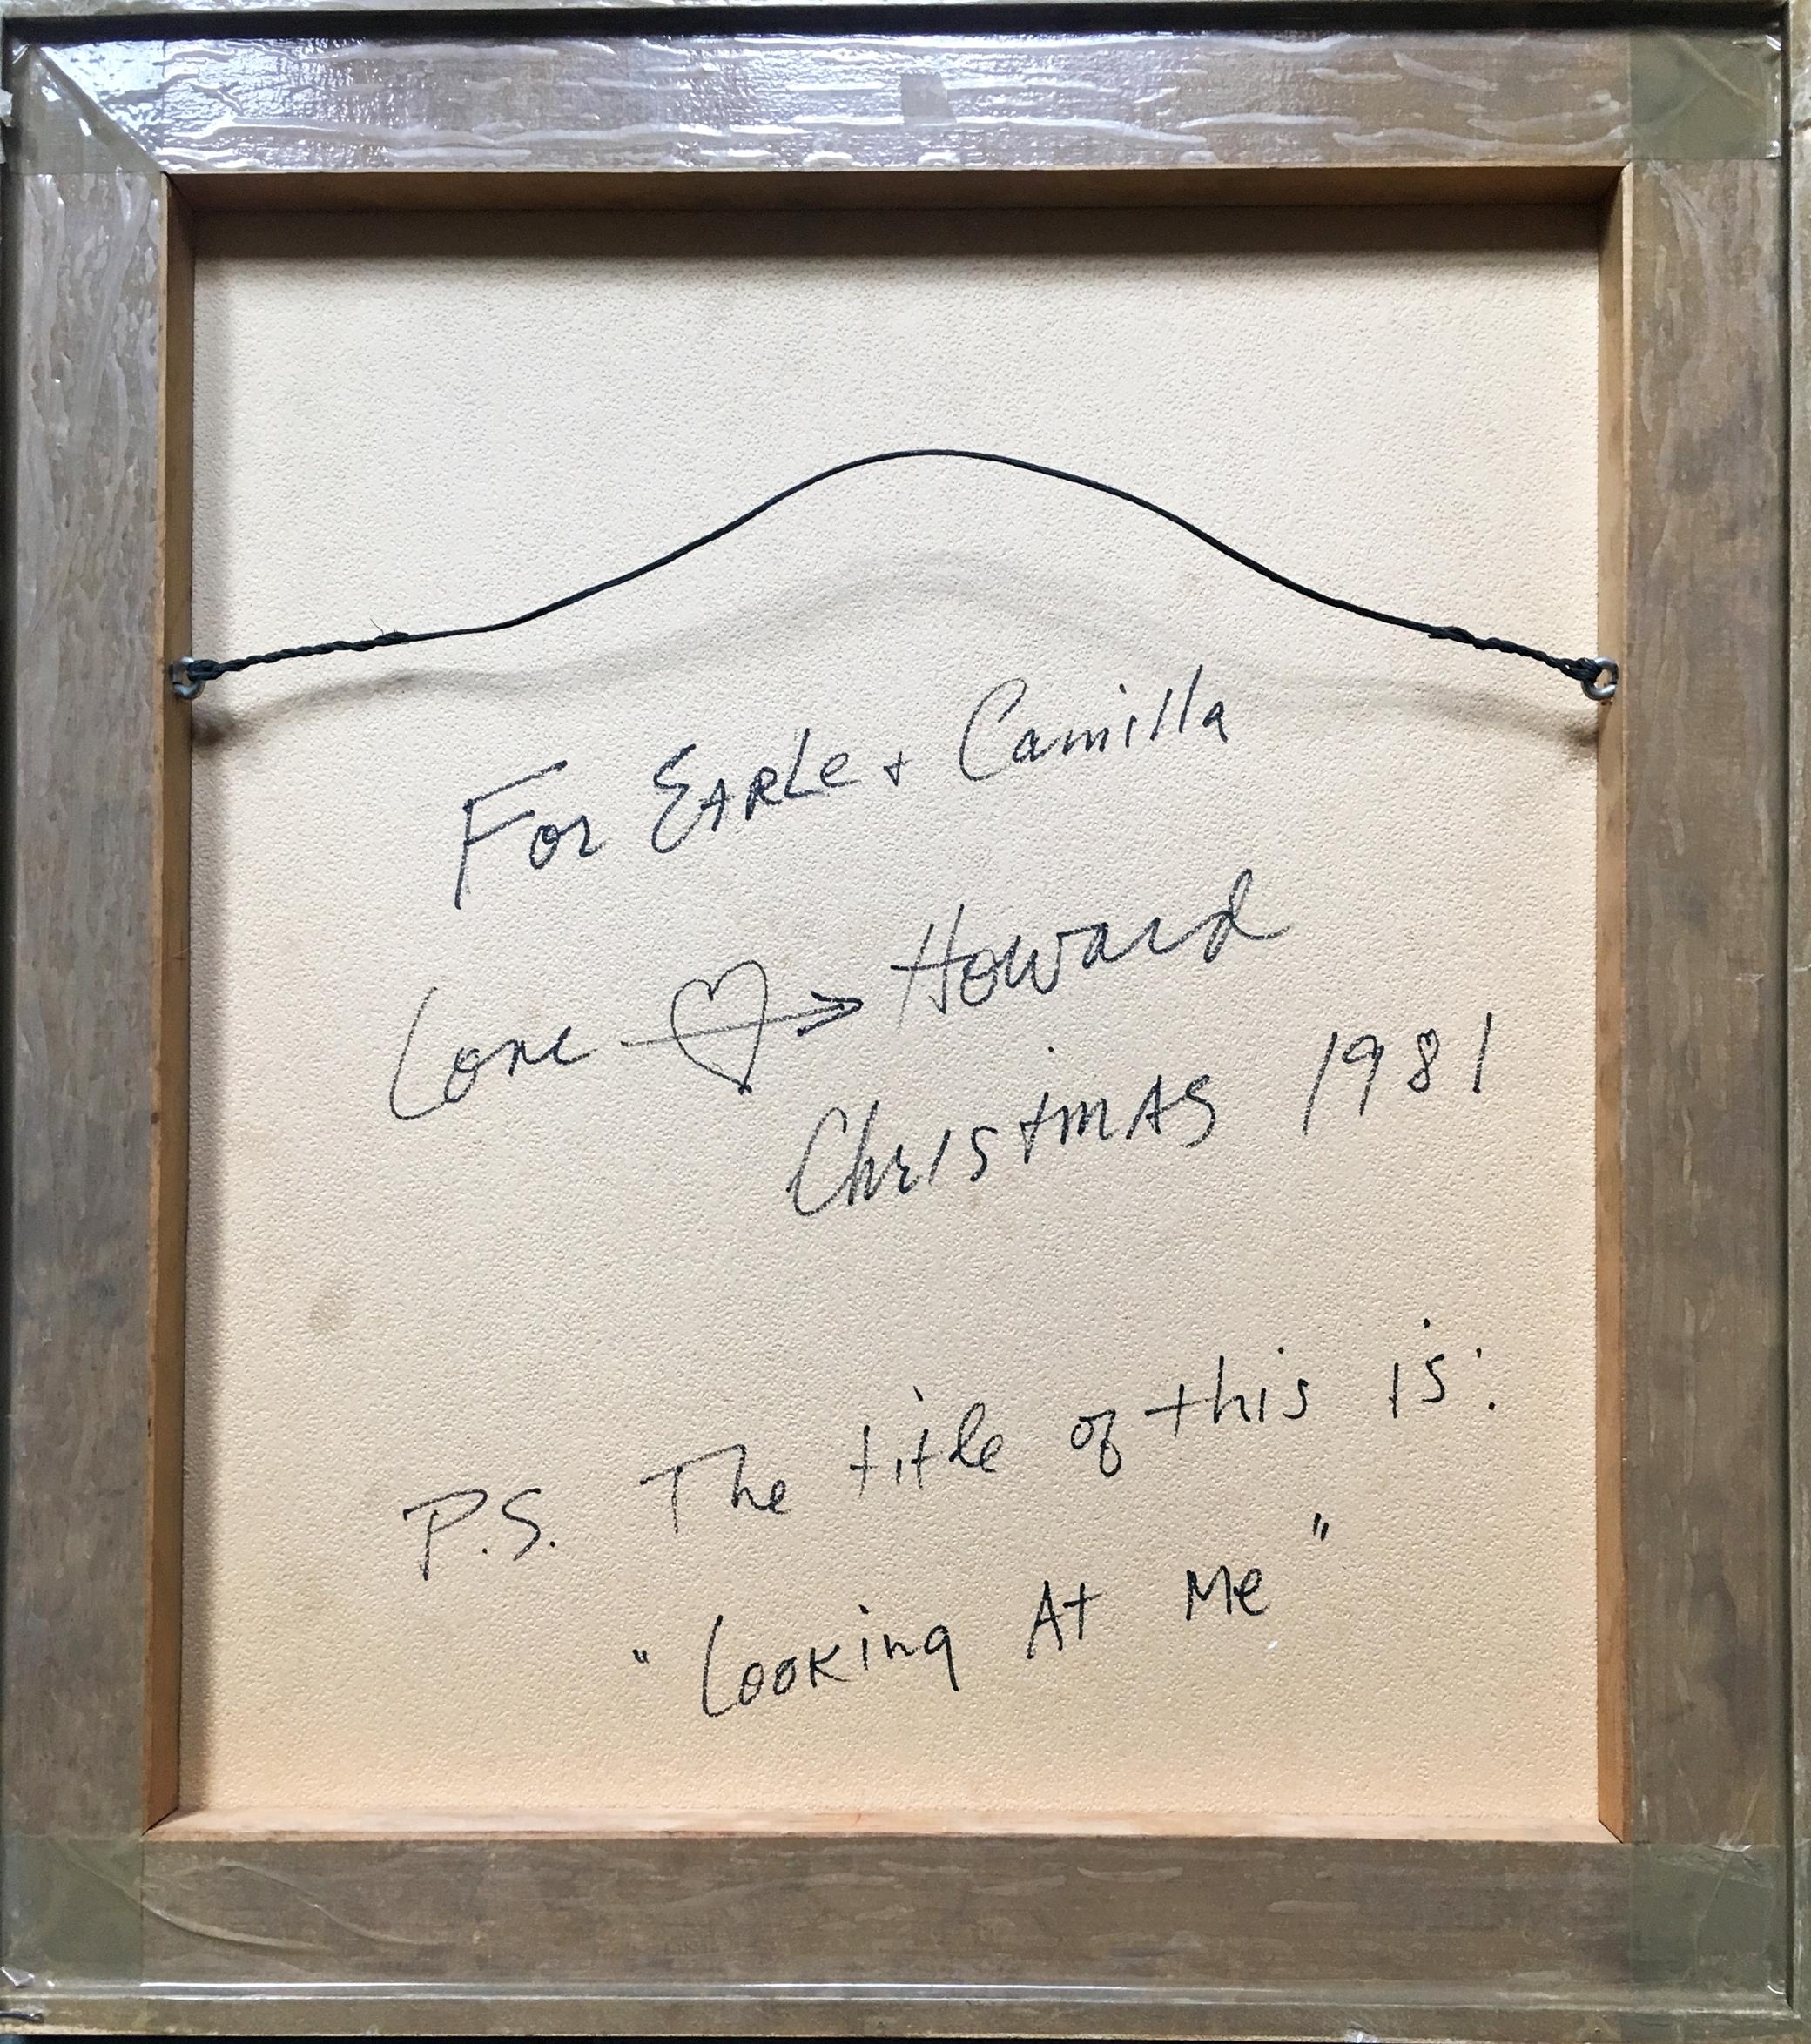 For EARLe + Camilla
Love ♡→ Howard
ChristmAS 1981
P.S. The title of this is:
"Looking At Me"